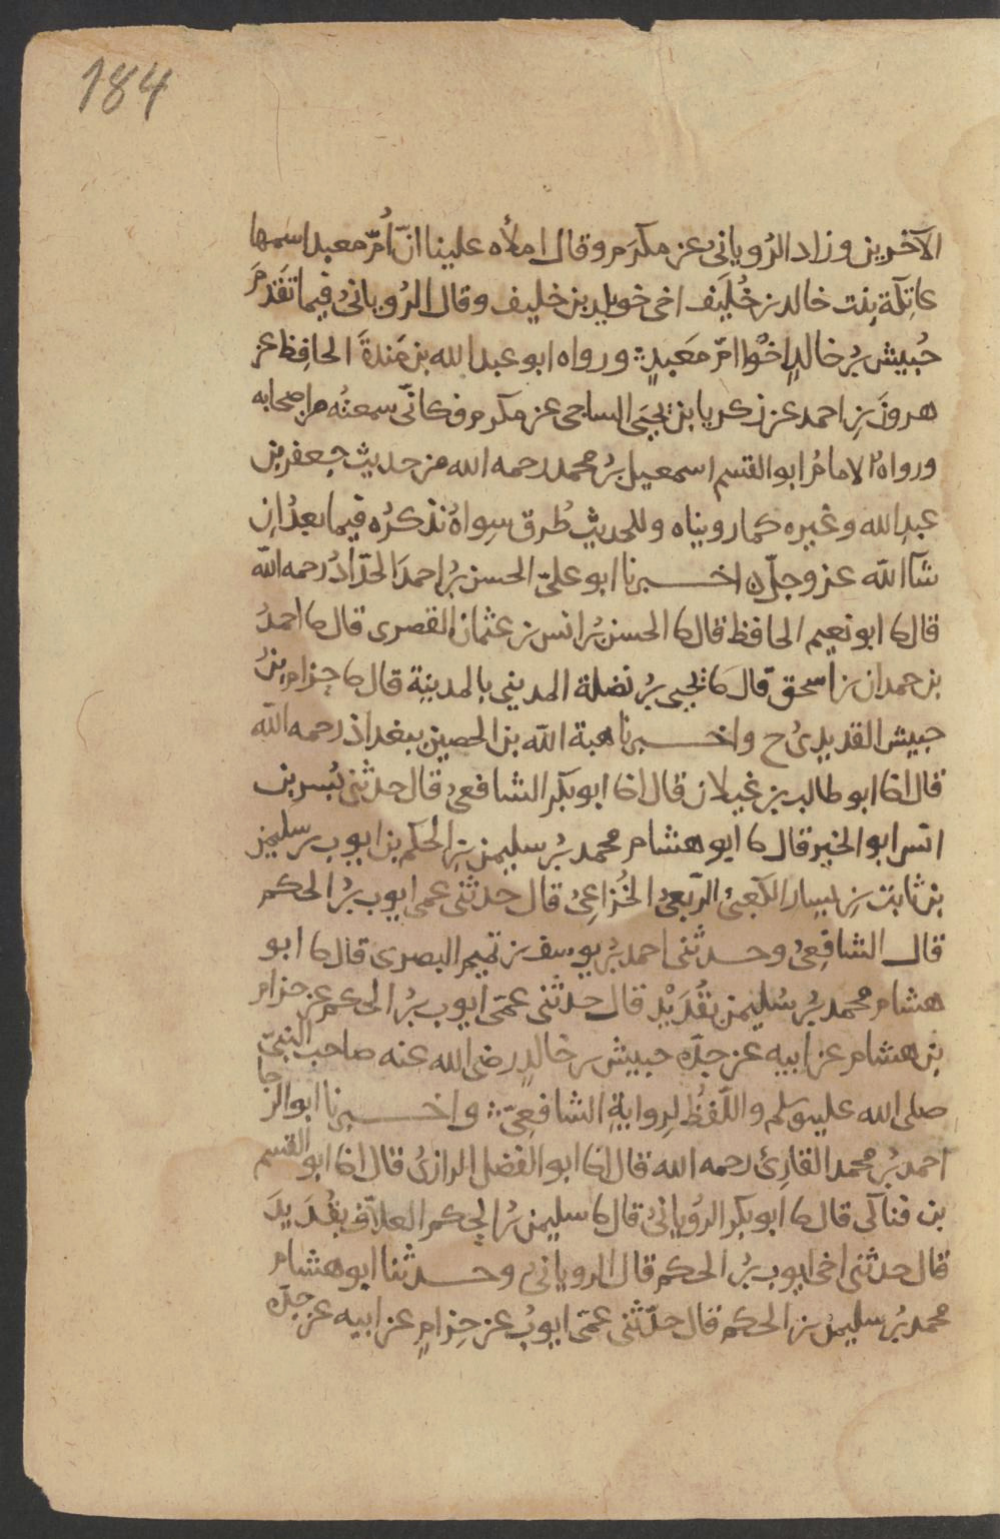 184
الآخرين وزاد الرُوياني عن مكرَم وقال املأه علينا انّ اُمّ معبد اسمها
عاتِكة بِنت خالد بن خُلَيف اخى خويلد بن خليف وقال الرُوياني فيما تقَدمَ
حُبيش بنُ خالدٍ اخُوا امّ معَبدٍ ورواه ابو عبد الله بن مَندةَ الحافِظ عن
هرونَ بنِ احمد عن زكريا بن يحيَى الساجى عن مكرم فكانّى سمعتُه من اصحابه
ورواهُ الامامُ ابو القسم اسمعيل بنُ محمد رحمه الله من حديث جعفر بن
عبدِ الله وغيره كما رويناه وللحديث طُرق سِواهُ نذكرُه فيما بعدُ ان
شآ الله عز وجلّ اخـــبرنا ابو علىّ الحسن بنُ احمدَ الحدّادُ رحمه الله
قال ثا ابو نعيم الحافظ قال ثا الحسن بنُ انس بن عثمان القصرى قال ثا احمدُ
بن حمدان بن اسحق قال ثا يحيى بنُ نضلة المديني بالمدينة قال ثا حِزام بنُ
حبيش القديدىُ ح واخـــبرنا هبة الله بن الحصين ببغداذ رحمه الله
قال انا ابو طالب بن غيلان قال انا ابو بكر الشافعىُ قال حدثنى بُسر بن
انس ابو الخير قال ثا ابو هشام محمد بنُ سليمن بنِ الحكم بن ايوب بن سليمن
بن ثابت بنِ يسار الكعبىُ الرّبعىُ الخُزاعِىُ قال حدثنى عمى ايوب بنُ الحكم
قال الشافِعِىُ وحـــدثنى احمد بنُ يوسف بن تميم البصرى قال ثا ابو
هشام محمد بنُ سُليمن بقُدَيْد قال حدثنى عمّى ايوب بنُ الحكم عن حزام
بن هشام عن ابيه عن جدّه حبيش بن خالدٍ رضى الله عنه صاحب النبىّ
صلى الله عليه وسلم واللّفظُ لِروايةِ الشافعىّ واخـــبرنا ابو الرجا
احمد بنُ محمد القارئ رحمه الله قال انا ابو الفضل الرازىُ قال انا ابو القسم
بن فناكى قال ثا ابو بكر الرُويانىُ قال ثا سليمن بنُ الحكم العلاّف بقُدَيدَ
قال حدثنى اخى ايوب بنُ الحكم قال الرويانى وحـــدثنا ابو هشام
محمد بنُ سليمن بن الحكم قال حدّثنى عمّى ايوبُ عن حِزامٍ عن ابيه عن جدّه